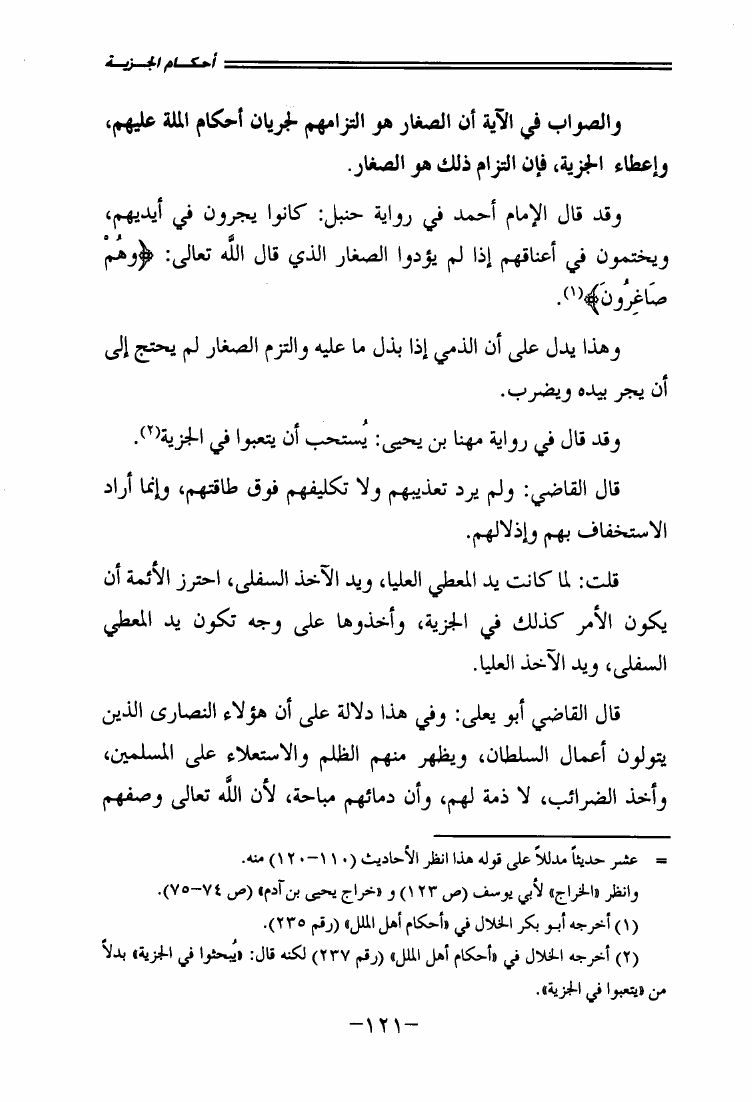 أحكام الجزية
والصواب في الآية أن الصغار هو التزامهم لجريان أحكام الملة عليهم،
وإعطاء الجزية، فإن التزام ذلك هو الصغار.
وقد قال الإمام أحمد في رواية حنبل: كانوا يجرون في أيديهم،
ويختمون في أعناقهم إذا لم يؤدوا الصغار الذي قال اللَّه تعالى: ﴿وهُمْ
صَاغِرُونَ﴾(١).
وهذا يدل على أن الذمي إذا بذل ما عليه والتزم الصغار لم يحتج إلى
أن يجر بيده ويضرب.
وقد قال في رواية مهنا بن يحيى: يُستحب أن يتعبوا في الجزية(٢).
قال القاضي: ولم يرد تعذيبهم ولا تكليفهم فوق طاقتهم، وإنما أراد
الاستخفاف بهم وإذلالهم.
قلت: لما كانت يد المعطي العليا، ويد الآخذ السفلى، احترز الأئمة أن
يكون الأمر كذلك في الجزية، وأخذوها على وجه تكون يد المعطي
السفلى، ويد الآخذ العليا.
قال القاضي أبو يعلى: وفي هذا دلالة على أن هؤلاء النصارى الذين
يتولون أعمال السلطان، ويظهر منهم الظلم والاستعلاء على المسلمين،
وأخذ الضرائب، لا ذمة لهم، وأن دمائهم مباحة، لأن اللَّه تعالى وصفهم
= عشر حديثاً مدللاً على قوله هذا انظر الأحاديث (١١٠–١٢٠) منه.
وانظر «الخراج» لأبي يوسف (ص ١٢٣) و «خراج يحيى بن آدم» (ص ٧٤–٧٥).
(١) أخرجه أبو بكر الخلال في «أحكام أهل الملل» (رقم ٢٣٥).
(٢) أخرجه الخلال في «أحكام أهل الملل» (رقم ٢٣٧) لكنه قال: «يُبحثوا في الجزية» بدلاً
من «يتعبوا في الجزية».
–١٢١–